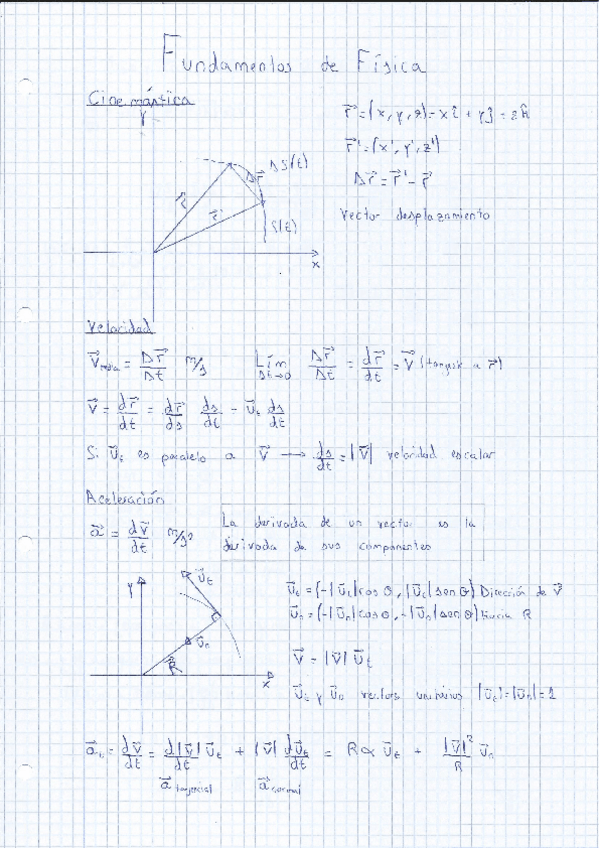 Fundamentos de Física
Cinemástica
Y
r⃗ = (x, y, z) = xî + yĵ = zk̂
r⃗' = (x', y', z')
Δr⃗ = r⃗' - r⃗
Vector desplazamiento
ΔS(t)
Δr⃗
r⃗
r⃗'
S(t)
x
Velocidad
V⃗media = Δr⃗/Δt m/s Lím Δt→0 Δr⃗/Δt = dr⃗/dt = V⃗ (tangente a r⃗)
V⃗ = dr⃗/dt = dr⃗/ds ds/dt = U⃗t ds/dt
Si U⃗t es paralelo a V⃗ → ds/dt = |V⃗| velocidad escalar
Aceleración
a⃗ = dv⃗/dt m/s²
La derivada de un vector es la
derivada de sus componentes
Y
U⃗t
U⃗n
R⃗
x
U⃗t = (-|U⃗t| cos θ, |U⃗t| sen θ) Dirección de V⃗
U⃗n = (-|U⃗n| cos θ, -|U⃗n| sen θ) hacia R
V⃗ = |V⃗| U⃗t
U⃗t y U⃗n vectores unitarios |U⃗t| = |U⃗n| = 1
= dv⃗/dt = d|V⃗|/dt U⃗t + |V⃗| dU⃗t/dt = R∝ U⃗t + |V⃗|²/R U⃗n
a⃗ tangencial a⃗ normal